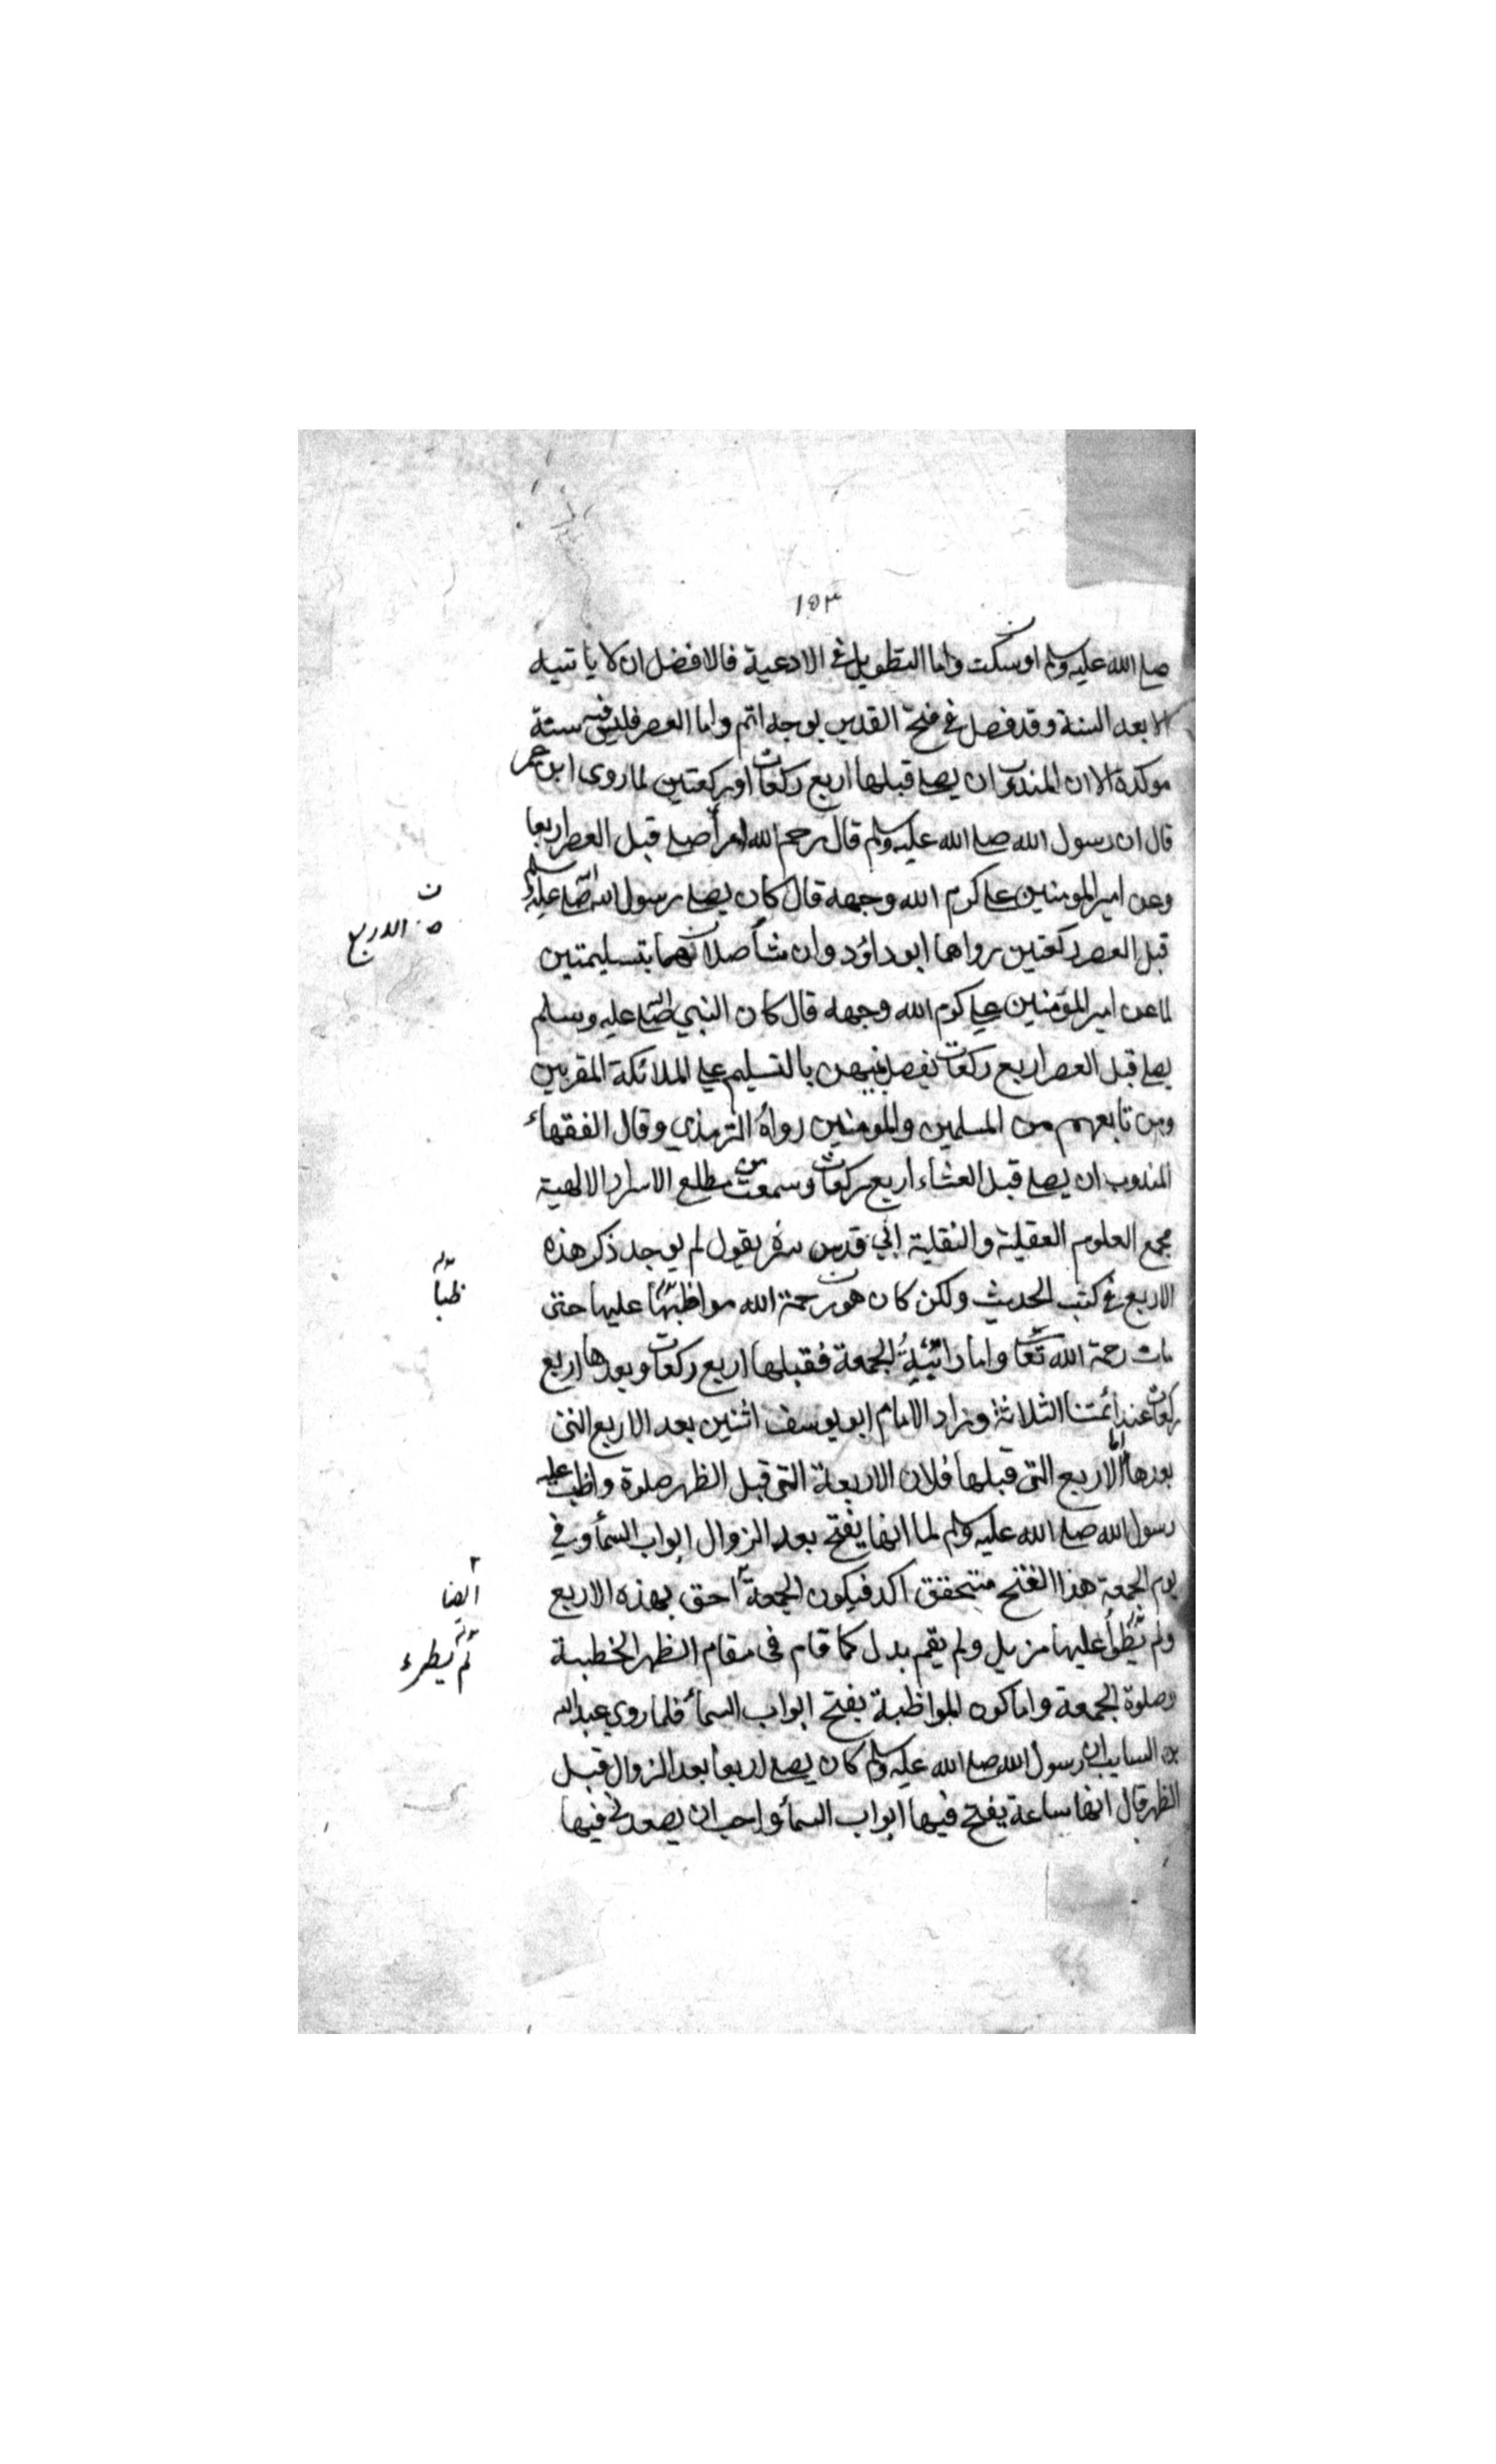 ١٥٣
صلے الله عليه وسلم اوسكت واما التطويل في الادعية فالافضل ان لا ياتيه
الا بعد السنة وقد فصل في فتح القدير بوجه اتم واما العصر فليس فيه سنة
موكدة الا ان المندوب ان يصلے قبلها اربع ركعات او ركعتين لما روى ابن عمر
قال ان رسول الله صلے الله عليه وسلم قال رحم الله امرأ صلے قبل العصر اربعا
وعن امير المومنين علے كرم الله وجهه قال كان يصلے رسول الله صلے الله عليه وسلم
قبل العصر ركعتين رواهما ابو داؤد وان شأ صلاهما بتسليمتين
ن
الاربع
لما عن امير المؤمنين علے كرم الله وجهه قال كان النبي صلے الله عليه وسلم
يصلے قبل العصر اربع ركعات يفصل بينهن بالتسليم علے الملائكة المقربين
ومن تابعهم من المسلمين والمومنين رواه الترمذي وقال الفقهاء
المندوب ان يصلے قبل العشاء اربع ركعات وسمعت من مطلع الاسرار الالهية
مجمع العلوم العقلية والنقلية ابي قدس سره يقول لم يوجد ذكر هذه
الاربع في كتب الحديث ولكن كان هو رحمة الله مواظبها عليها حتى
ظباً
مات رحمة الله تعا واما راتبة الجمعة فقبلها اربع ركعات وبعدها اربع
ركعات عند أئمتنا الثلاثة وزاد الامام ابو يوسف اثنين بعد الاربع التي
بعدها اما الاربع التي قبلها فلان الاربعة التي قبل الظهر صلوة واظب عليه
رسول الله صلے الله عليه وسلم لما انها يفتح بعد الزوال ابواب السمأ وفي
يوم الجمعة هذا الفتح متحقق اكد فيكون الجمعة احق بهذه الاربع
٢
أيضا
ولم يظرأ عليها مزيل ولم يقم بدل كما قام في مقام الظهر الخطبة
لم يطرء
وصلوة الجمعة واما كون المواظبة بفتح ابواب السمأ فلما روي عبد الله
بن السايب ان رسول الله صلے الله عليه وسلم كان يصلے اربعا بعد الزوال قبل
الظهر قال انها ساعة يفتح فيها ابواب السمأ واحب ان يصعد لي فيها